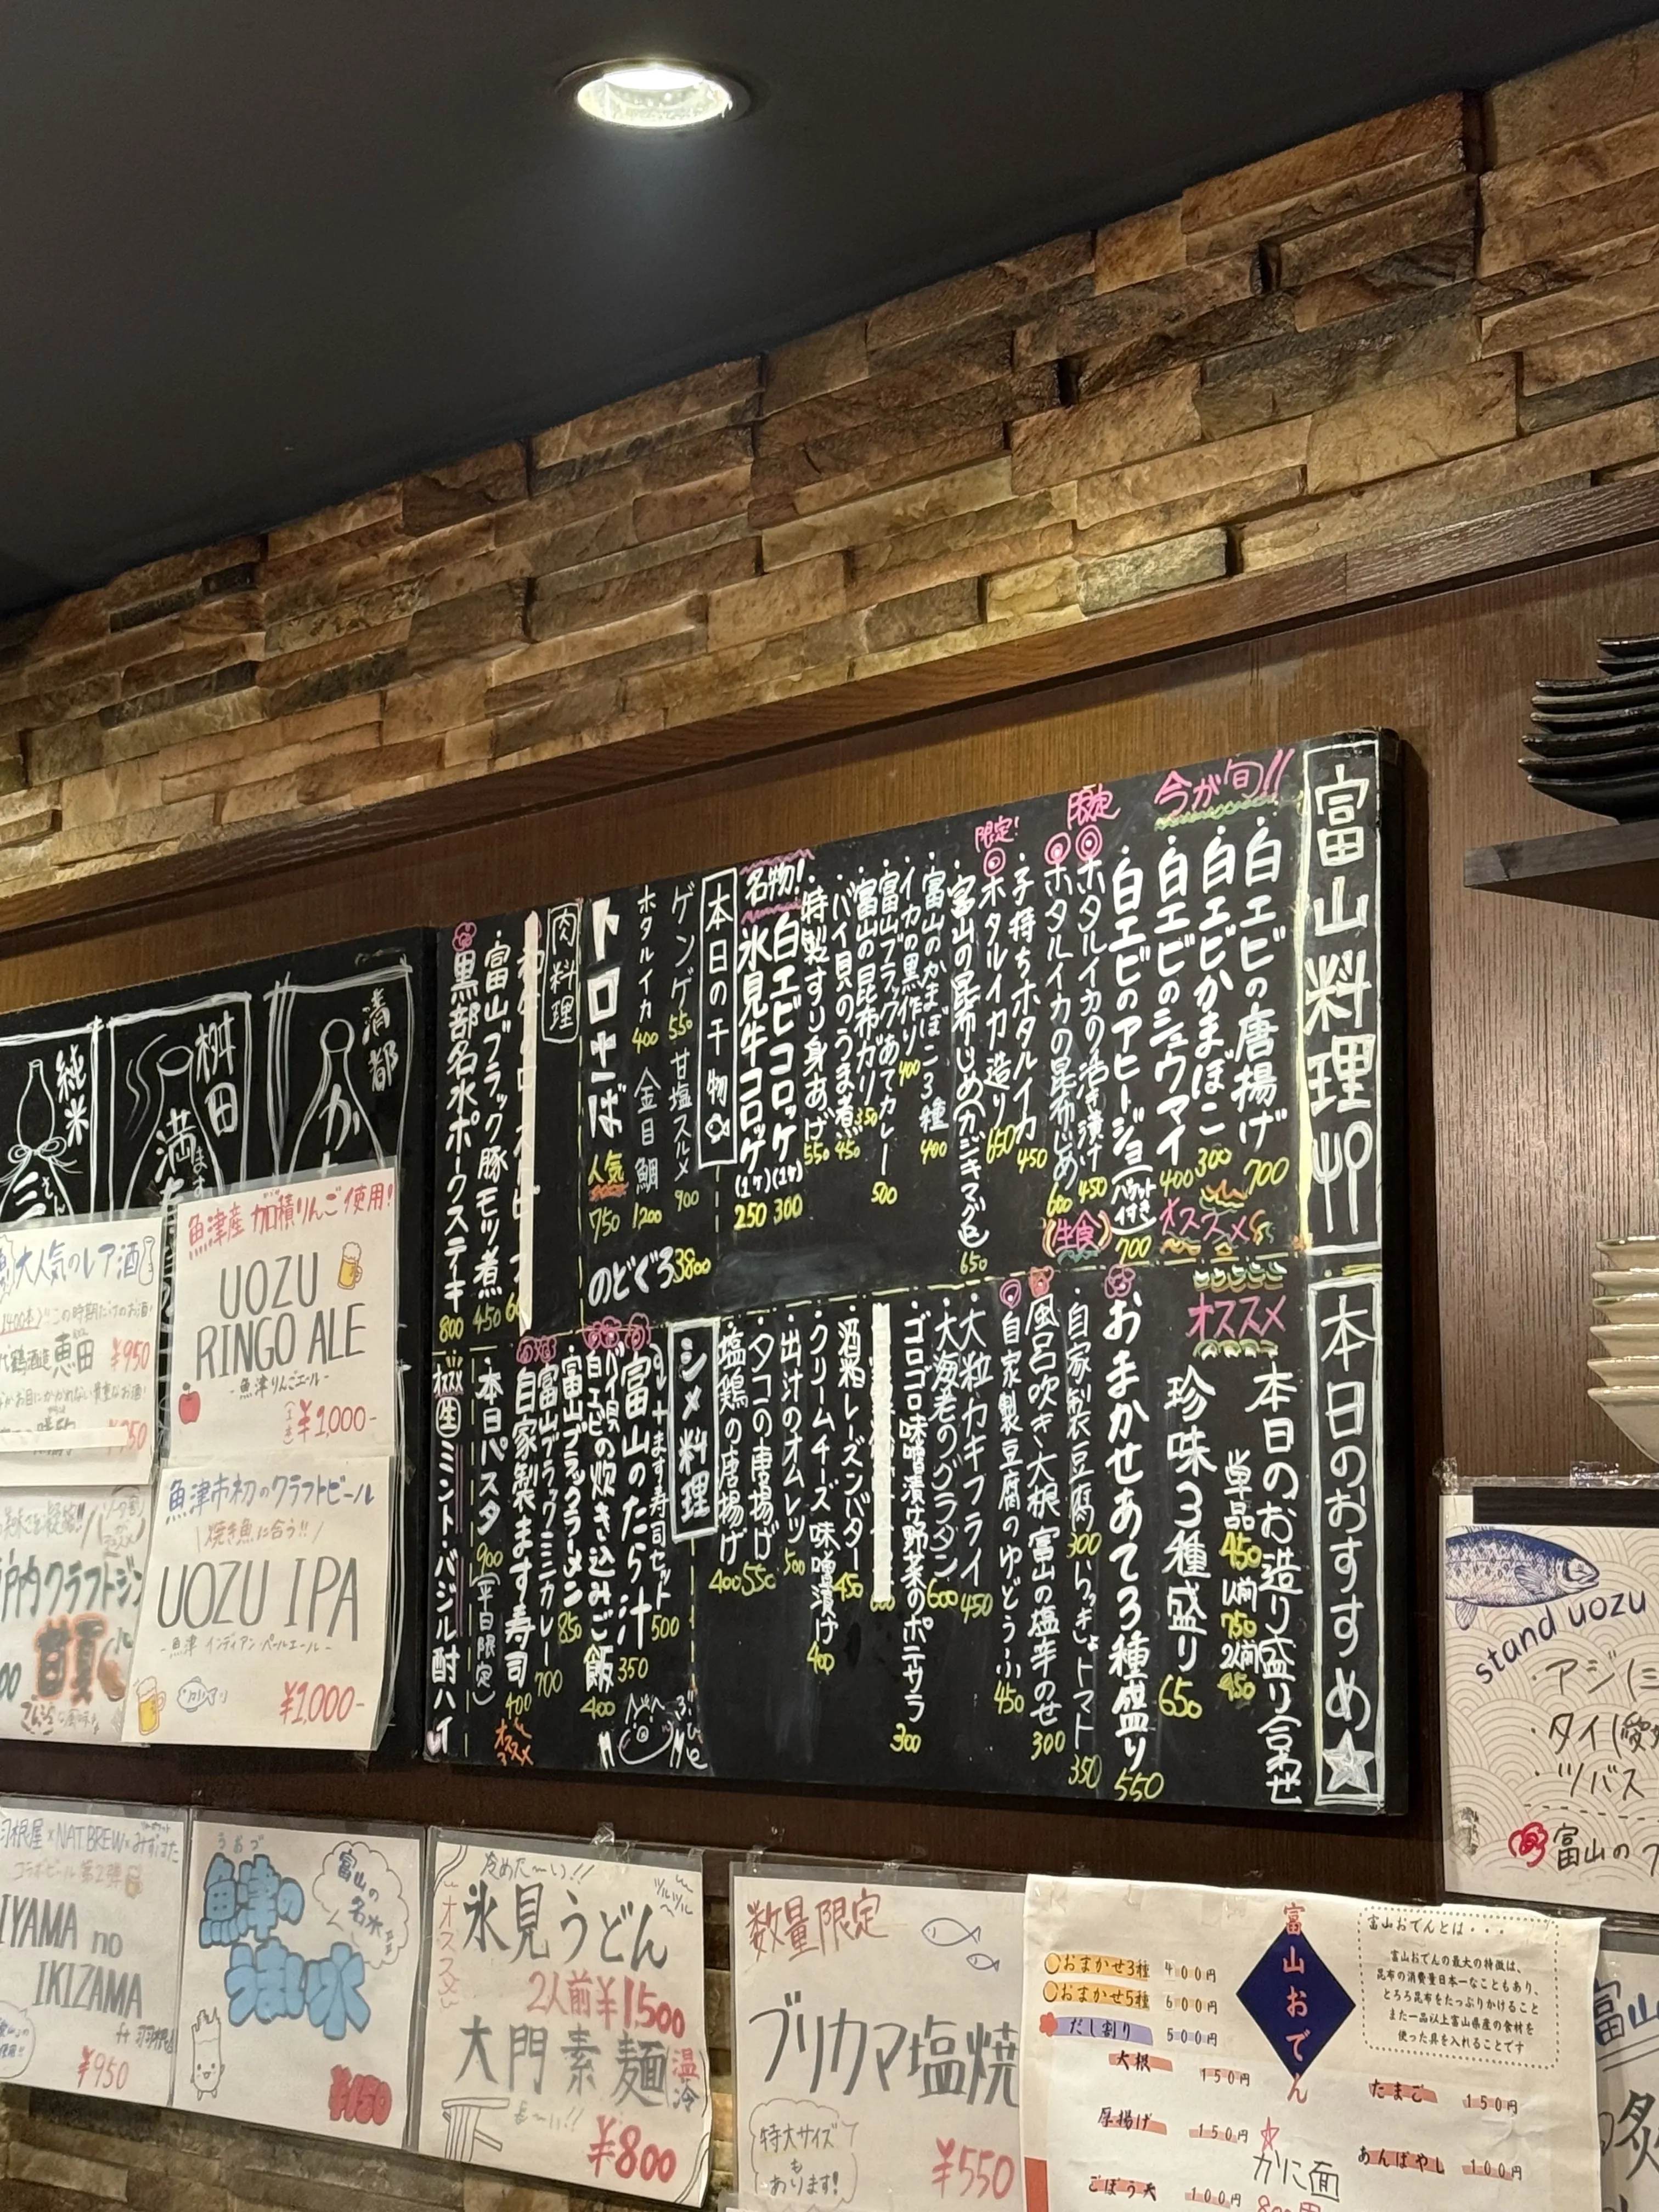 富山料理
今が旬!!
・白エビの唐揚げ 700
・白エビかまぼこ 300
・白エビのシュウマイ 400
オススメ
・白エビのアヒージョ(バケット付き) 700
限定
ホタルイカの沖漬け 450
ホタルイカの昆布じめ 600
(生食)
・子持ちホタルイカ 450
限定!
ホタルイカ造り 650
・富山の昆布じめ(カジキマグロ) 650
・富山のかまぼこ3種 400
・イカの黒作り 400
・富山ブラックあてカレー 500
・富山の昆布ガリ 350
・バイ貝のうま煮 450
・特製すり身あげ 550
名物!
白エビコロッケ(1ケ) 300
氷見牛コロッケ(1ケ) 250
本日の干物
ゲンゲ 550 甘塩スルメ 900
ホタルイカ 400 金目鯛 1200
のどぐろ 3800
トロさば 人気 750
肉料理
・富山ブラック豚モツ煮 450
黒部名水ポークステーキ 800
本日のおすすめ
オススメ
本日のお造り盛り合わせ
単品 450 1人前 750 2人前 950
珍味3種盛り 650
おまかせあて3種盛り 550
自家製豆腐 300
いらっきょトマト 350
風呂吹き大根 富山の塩辛のせ 300
自家製豆腐のゆどうふ 450
・大粒カキフライ 450
・大海老のグラタン 600
・ゴロゴロ味噌漬け野菜のポテサラ 300
・酒粕レーズンバター 450
・クリームチーズ味噌漬け 400
・出汁のオムレツ 500
・タコの唐揚げ 550
・塩鶏の唐揚げ 400
シメ料理
ます寿司セット 500
富山のたら汁 350
バイ貝の炊き込みご飯 400
白エビの
・富山ブラックラーメン 850
富山ブラックミニカレー 700
自家製ます寿司 400
オススメ
・本日パスタ 900(平日限定)
オススメ
生ミント・バジル酎ハイ
清都
か
桝田
満寿
ます
純米
三
さん
魚津産 加積りんご使用!
UOZU
RINGO ALE
-魚津りんごエール-
¥1,000-
魚津市初のクラフトビール
\焼き魚に合う!!/
UOZU IPA
-魚津 インディアン・ペールエール-
¥1,000-
大人気のレア酒
この時期だけのお酒!
恵田 ¥950
クラフトジン
甘夏
羽根屋×NAT.BREW×みずはた
コラボビール 第2弾
IYAMA no
IKIZAMA
ft 羽根屋
¥950
うおづ
魚津の
うまい水
富山の
名水
¥150
冷めた〜い!!
ツルツル
オススメ
氷見うどん
2人前¥1500
大門素麺(温冷)
¥800
数量限定
ブリカマ塩焼
特大サイズ
も
あります!
¥550
富山おでん
おまかせ3種 400円
おまかせ5種 600円
だし割り 500円
大根 150円
厚揚げ 150円
ごぼう天 100円
富山おでんとは・・・
富山おでんの最大の特徴は、
昆布の消費量日本一なこともあり、
とろろ昆布をたっぷりかけること
また一品以上富山県産の食材を
使った具を入れることです
たまご 150円
あんばやし 100円
かに面
stand uozu
・アジ
・タイ
・ツバス
富山の
富山
炙